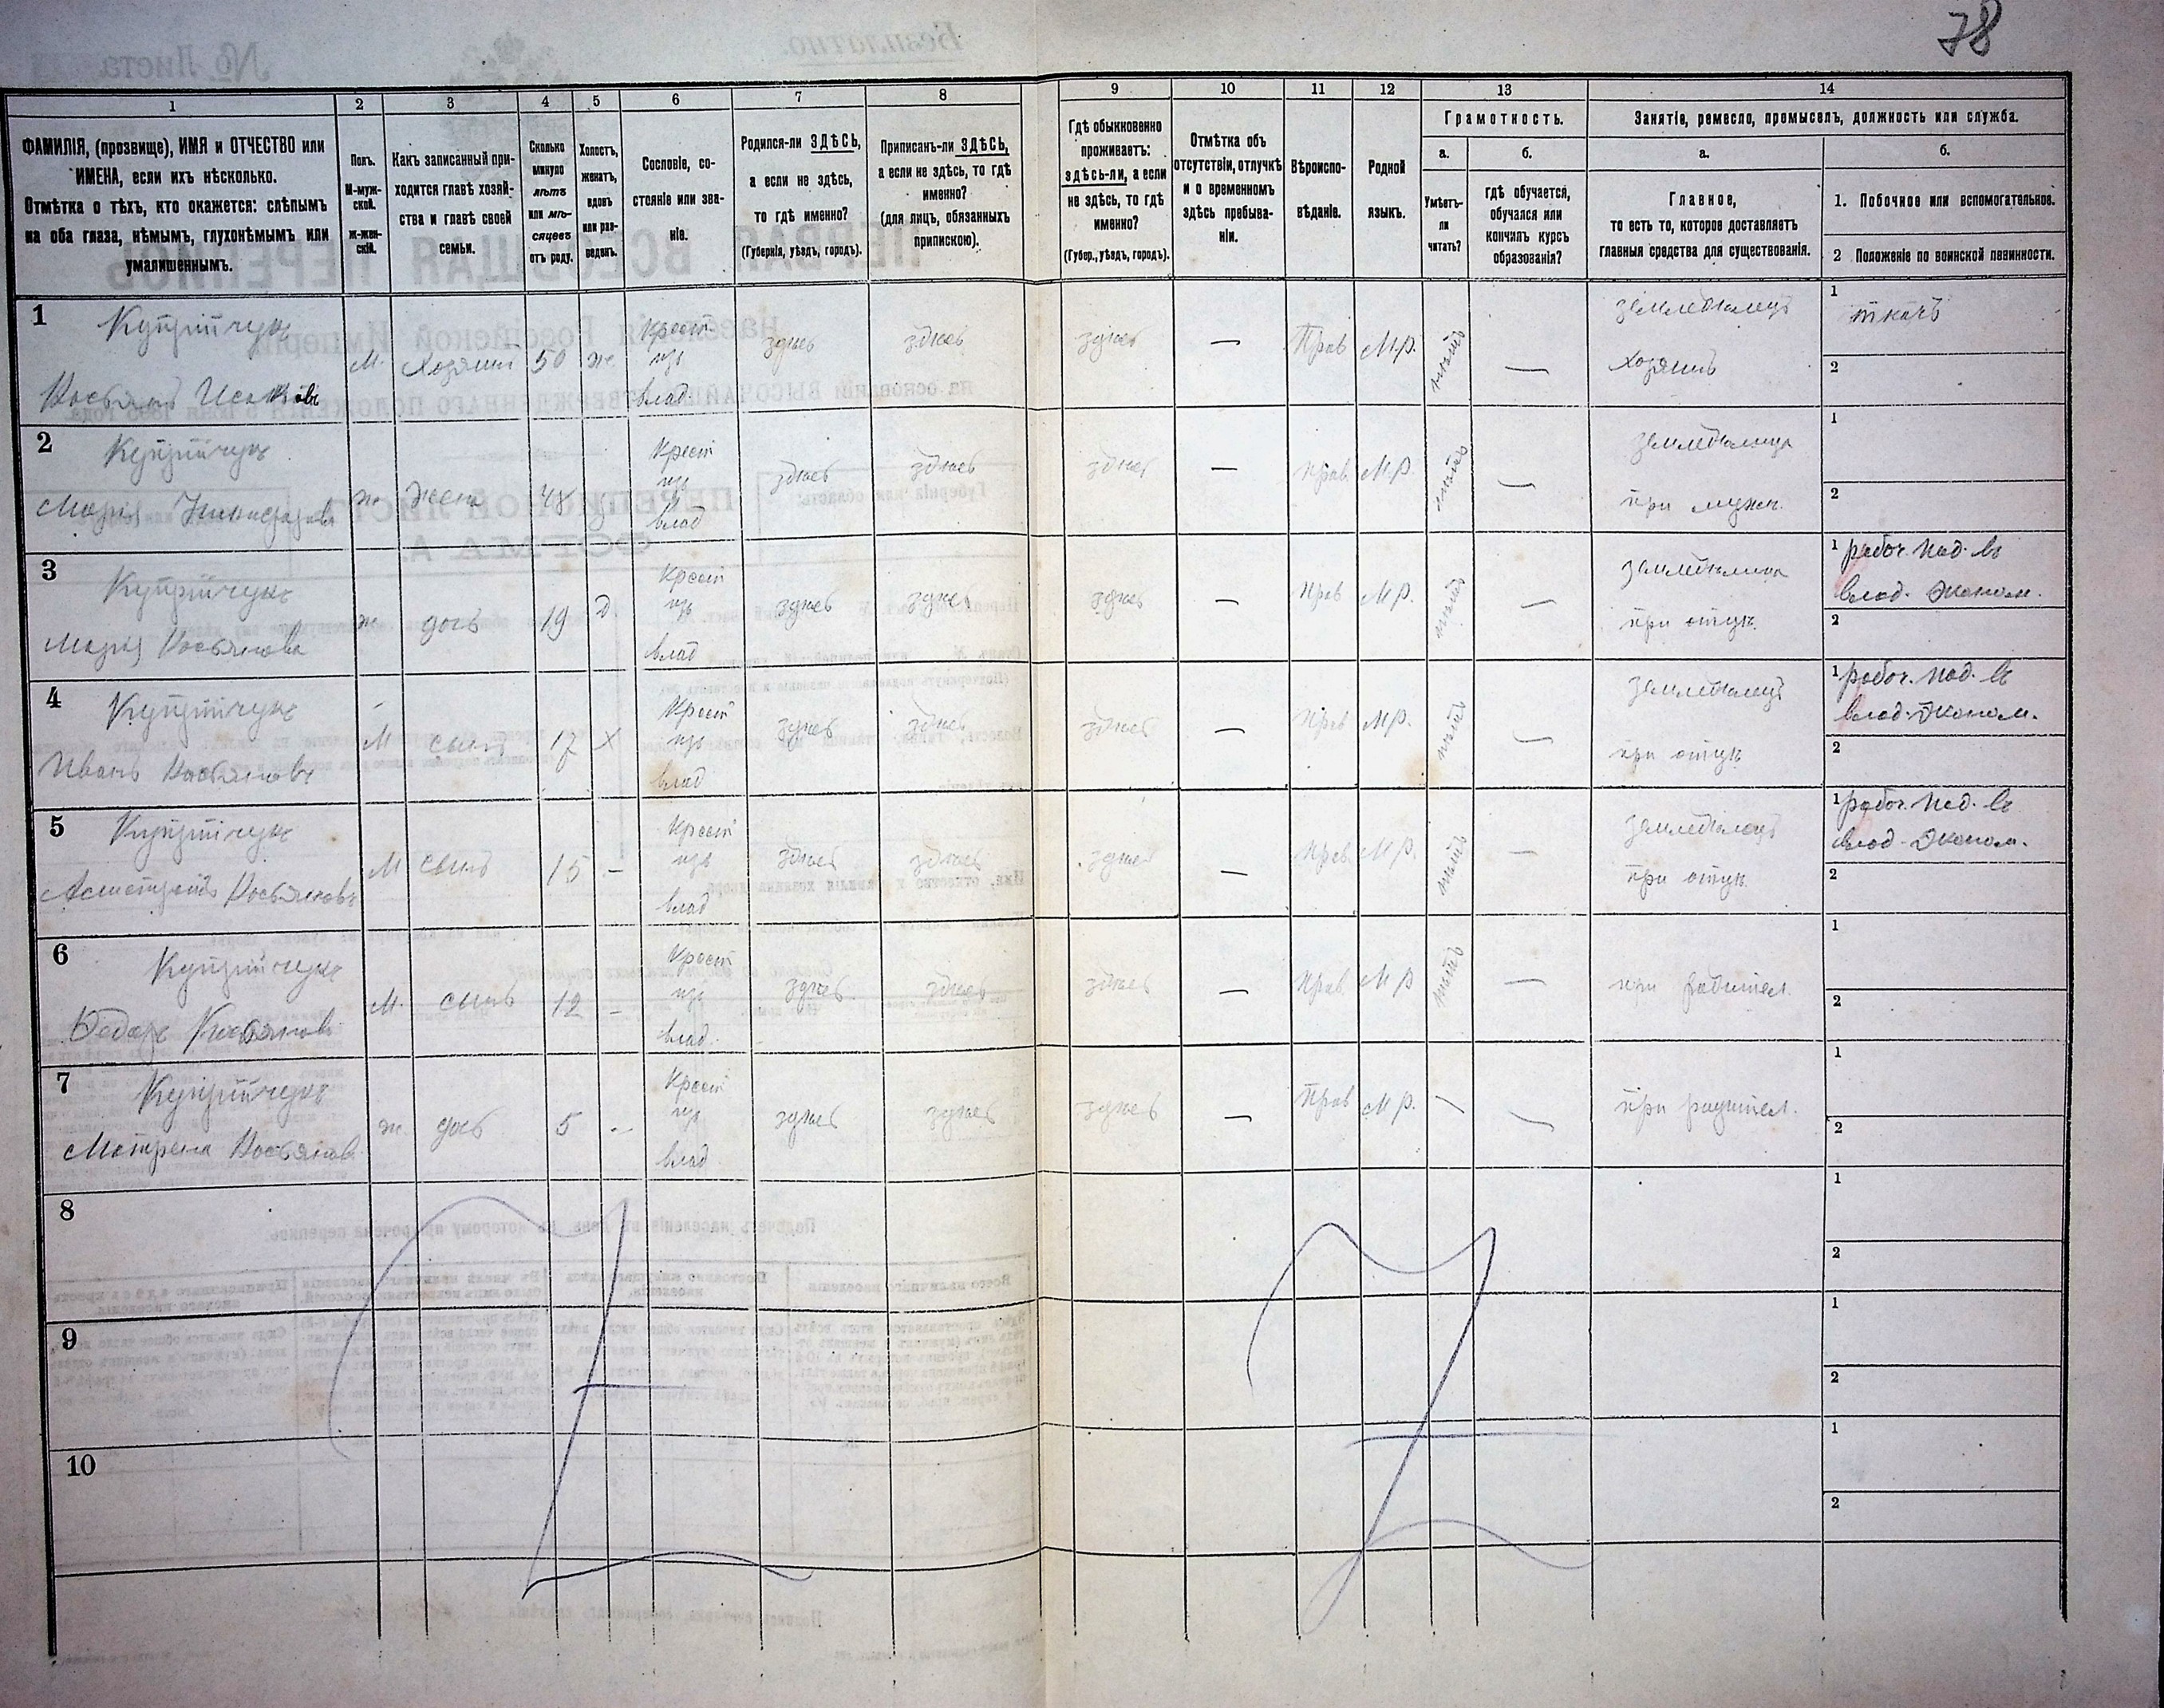 78
1
2
3
4
5
6
7
8
9
10
11
12
13
14
ФАМИЛІЯ, (прозвище), ИМЯ и ОТЧЕСТВО или
ИМЕНА, если ихъ нѣсколько.
Отмѣтка о тѣхъ, кто окажется: слѣпымъ
на оба глаза, нѣмымъ, глухонѣмымъ или
умалишеннымъ.
Полъ.
М-муж-
ской.
ж-жен-
скій.
Какъ записанный при-
ходится главѣ хозяй-
ства и главѣ своей
семьи.
Сколько
минуло
лѣтъ
или мѣ-
сяцевъ
отъ роду.
Холостъ,
женатъ,
вдовъ
или раз-
веденъ.
Сословіе, со-
стояніе или зва-
ніе.
Родился-ли ЗДѢСЬ,
а если не здѣсь,
то гдѣ именно?
(Губернія, уѣздъ, городъ).
Приписанъ-ли ЗДѢСЬ,
а если не здѣсь, то гдѣ
именно?
(для лицъ, обязанныхъ
припискою).
Гдѣ обыкновенно
проживаетъ:
здѣсь-ли, а если
не здѣсь, то гдѣ
именно?
(Губер., уѣздъ, городъ).
Отмѣтка объ
отсутствіи, отлучкѣ
и о временномъ
здѣсь пребыва-
ніи.
Вѣроиспо-
вѣданіе.
Родной
языкъ.
Грамотность.
а.
б.
Умѣетъ-
ли
читать?
гдѣ обучается,
обучался или
кончилъ курсъ
образованія?
Занятіе, ремесло, промыселъ, должность или служба.
а.
б.
Главное,
то есть то, которое доставляетъ
главныя средства для существованія.
1. Побочное или вспомогательное.
2 Положеніе по воинской повинности.
1
М. Хозяинъ 50 ж.
Крест
изъ
влад.
здѣсь
здѣсь
здѣсь
—
Прав
М.р.
нѣтъ
—
земледѣлецъ
хозяинъ
1
ткачъ
2
2
Марія
ж жена
Крест
изъ
влад
здѣсь
здѣсь
здѣсь
—
Прав
М.р.
нѣтъ
—
при мужѣ.
1
2
3
Марія Касьянова
ж дочь 19 д.
Крест
изъ
влад
здѣсь
здѣсь
здѣсь
—
Прав
М.р.
нѣтъ
—
при отцѣ.
1 рабоч. под. въ
влад. эконом.
2
4
Иванъ Касьяновъ
М сынъ 17 Х
Крест
изъ
влад
здѣсь
здѣсь
здѣсь
—
Прав
М.р.
нѣтъ
—
земледѣлецъ
при отцѣ
1 рабоч. под. въ
влад. эконом.
2
5
Касьяновъ
М сынъ 15 –
Крест
изъ
влад
здѣсь
здѣсь
здѣсь
—
Прав
М.р.
нѣтъ
—
земледѣлецъ
при отцѣ.
1 рабоч. под. въ
влад. эконом.
2
6
Ѳедоръ Касьяновъ
М. сынъ 12 –
Крест
изъ
влад.
здѣсь
здѣсь
здѣсь
—
Прав
М р
нѣтъ
—
при родител.
1
2
7
Матрена Касьянов
ж. дочь 5 –
Крест
изъ
влад
здѣсь
здѣсь
здѣсь
—
Прав
М р.
—
—
при родител.
1
2
8
1
2
9
1
2
10
1
2